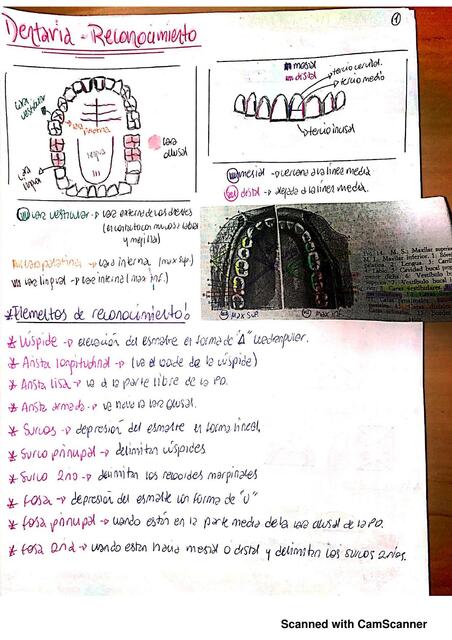 ①
Dentaria - Reconocimiento
cara vestibular
cara palatina
lengua
cara oclusal
cara lingual
mesial
distal
tercio cervical.
tercio medio
tercio incisal
mesial → cercana a la línea media
distal → alejada a la línea media.
cara vestibular → cara externa de los dientes
(en contacto con mucosa labial
y mejilla)
cara palatina → cara interna (max sup.)
cara lingual → cara interna (max inf.)
MAX SUP
MAX INF.
*Elementos de reconocimiento:
* Cúspide → elevación del esmalte en forma de "Δ" cuadrangular.
* Arista longitudinal → (va al borde de la cúspide)
* Arista lisa → va a la parte libre de la PD.
* Arista armada → va hacia la cara oclusal.
* Surcos → depresión del esmalte en forma lineal.
* Surco principal → delimitan cúspides
* Surco 2rio → delimitan los rebordes marginales
* Fosa → depresión del esmalte con forma de "U"
* Fosa principal → cuando están en la parte media de la cara oclusal de la PD.
* Fosa 2ria → cuando están hacia mesial o distal y delimitan los surcos 2rios.
Scanned with CamScanner